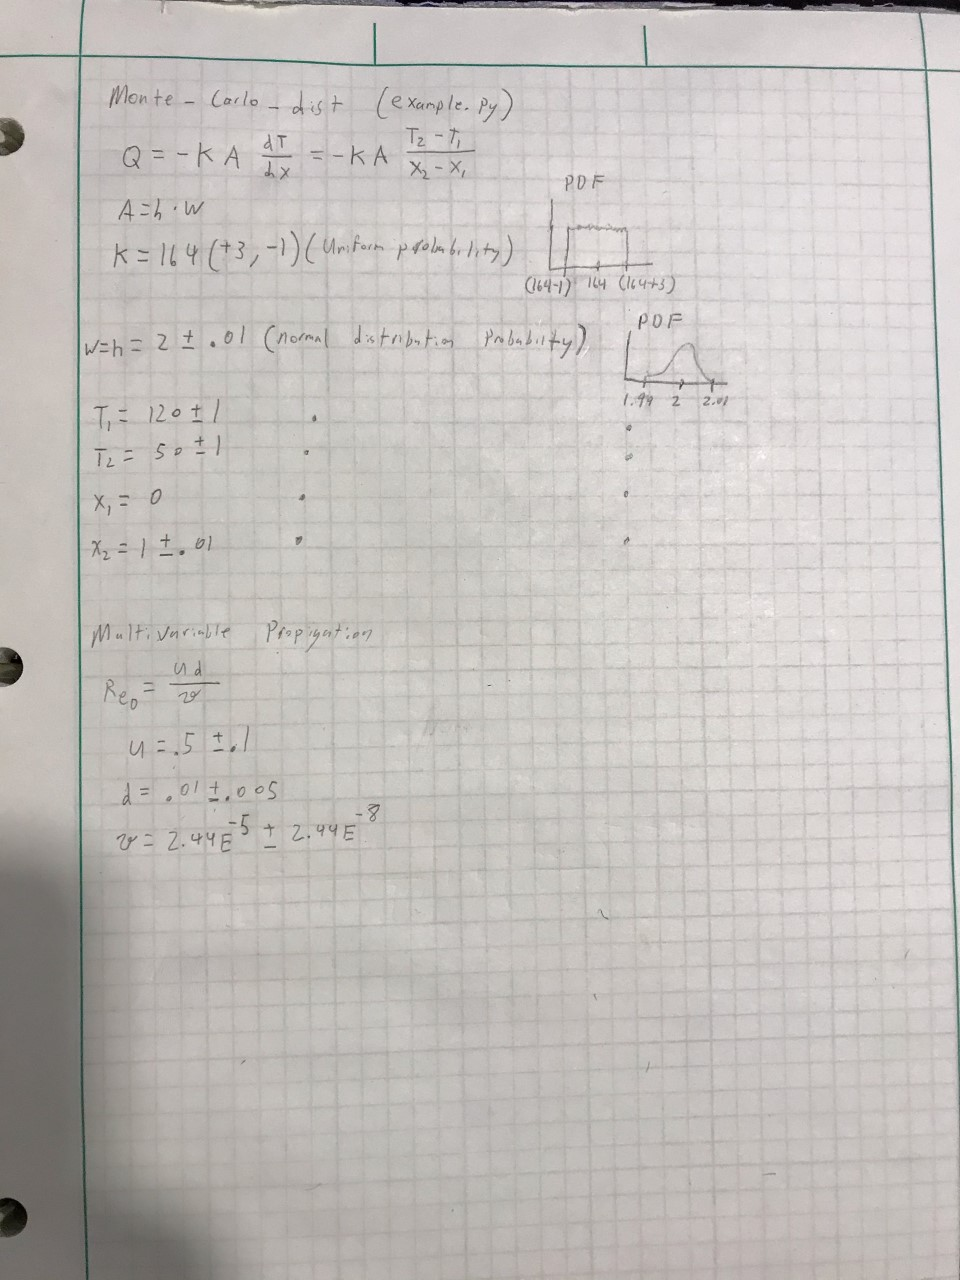 Monte-Carlo-dist (example.py)
Q = -K A dT/dx = -K A (T₂ - T₁)/(x₂ - x₁)
PDF
A = h · W
K = 164 (+3, -1) (Uniform probability)
(164-1) 164 (164+3)
PDF
W=h = 2 ± .01 (normal distribution Probability)
1.99 2 2.01
T₁ = 120 ± 1
T₂ = 50 ± 1
x₁ = 0
x₂ = 1 ± .01
Multivariable Propigation
Re_D = ud/𝜈
u = .5 ± .1
d = .01 ± .005
𝜈 = 2.44E⁻⁵ ± 2.44E⁻⁸